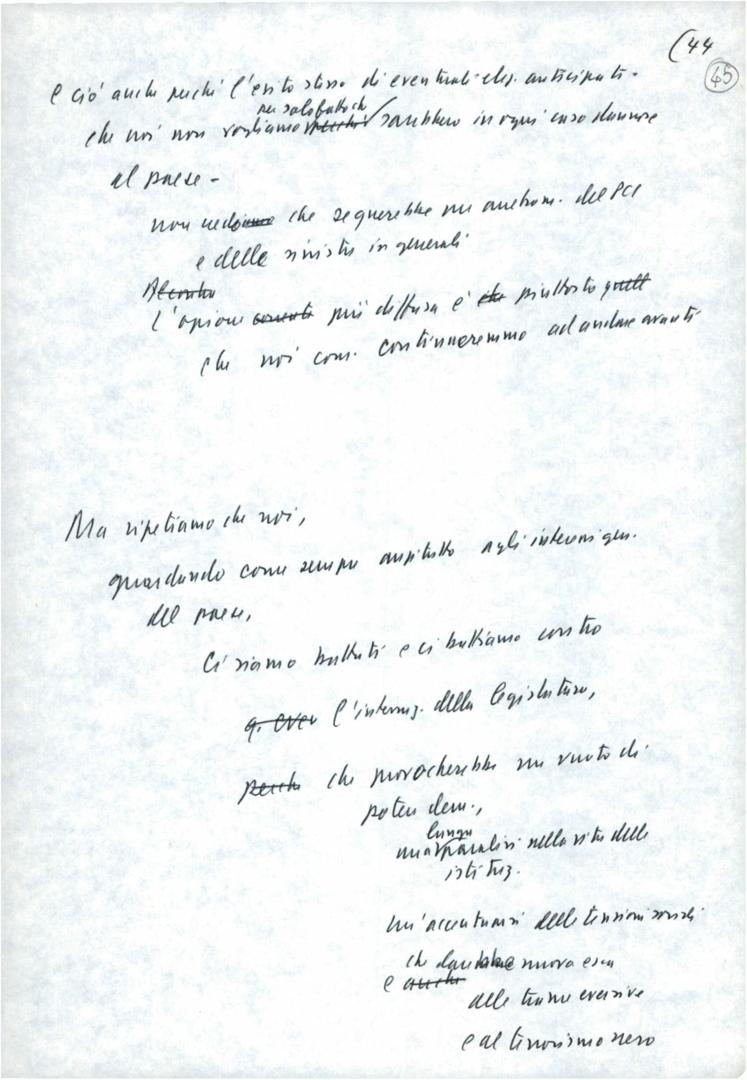 (44
45
e ciò anche perché l'esito stesso di eventuali elez. anticipate -
per solo fatto ch
che noi non vogliamo perché sarebbero in ogni caso dannose
al paese -
non che seguirebbe un aretram. del PCI
e delle sinistre in generali
L'opione più diffusa è che piuttosto quell
che noi com. continueremmo ad andare avanti
Ma ripetiamo che noi,
guardando come sempre anzitutto agli interessi gen.
del paese,
Ci siamo battuti e ci battiamo contro
l'interruz. della legislatura,
perché che provocherebbe un vuoto di
potere dem.,
lunga
una paralisi nella vita delle
istituz.
un' accentuarsi delle tensioni sociali
ch darebbe nuova esca
e anche
alle trame eversive
e al terrorismo nero